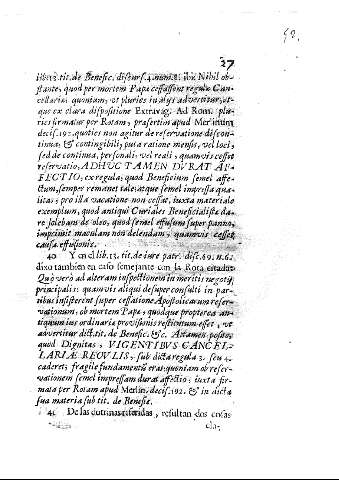 27
lib. 13. tit. de Benefic. discurs. 4. num. 8. ibi: Nihil ob-
stante, quod per mortem Papæ cessassent regulæ Can-
cellariæ: quoniam, ut pluries in alijs advertitur, at-
que ex clara dispositione Extravag. Ad Rom.
firmatur per Rotam, præsertim apud Merlinum
decis. 192. quoties non agitur de reservatione discon-
tinua, & contingibili, puta ratione mensis, vel loci,
sed de continua, personali, vel reali, quamvis cesset
reservatio, ADHUC TAMEN DURAT AF-
FECTIO, ex regula; quod Beneficium semel affe-
ctum, semper remanet tale, atque semel impressa qua-
litas, pro illa vacatione non cessat, iuxta materiale
exemplum, quod antiqui Curiales Beneficialistæ da-
re solebant de oleo, quod semel effusum super panno,
imprimit maculam non delendam, quamvis cesset
causa effusionis.
40 Y en el lib. 13. tit. de iure patr. disc. 69. n. 6.
dixo tambien en caso semejante con la Rota citada:
Quò verò ad alteram inspectionem in meritis negotij
principalis: quamvis aliqui desuper consulti in par-
tibus insisterent super cessatione Apostolicarum reser-
vationum, ob mortem Papæ, quodque propterea an-
tiquum ius ordinariæ provisionis restitutum esset, ut
advertitur dict. tit. de Benefic. &c. Attamen posito,
quod Dignitas, VIGENTIBUS CANCEL-
LARIÆ REGULIS, sub dicta regula 3. seu 4.
caderet; fragile fundamentum erat: quoniam ob reser-
vationem semel impressam durat affectio; iuxta fir-
mata per Rotam apud Merlin. decis. 192. & in dicta
sua materia sub tit. de Benefic.
41 De las doctrinas referidas, resultan dos cosas
cla-